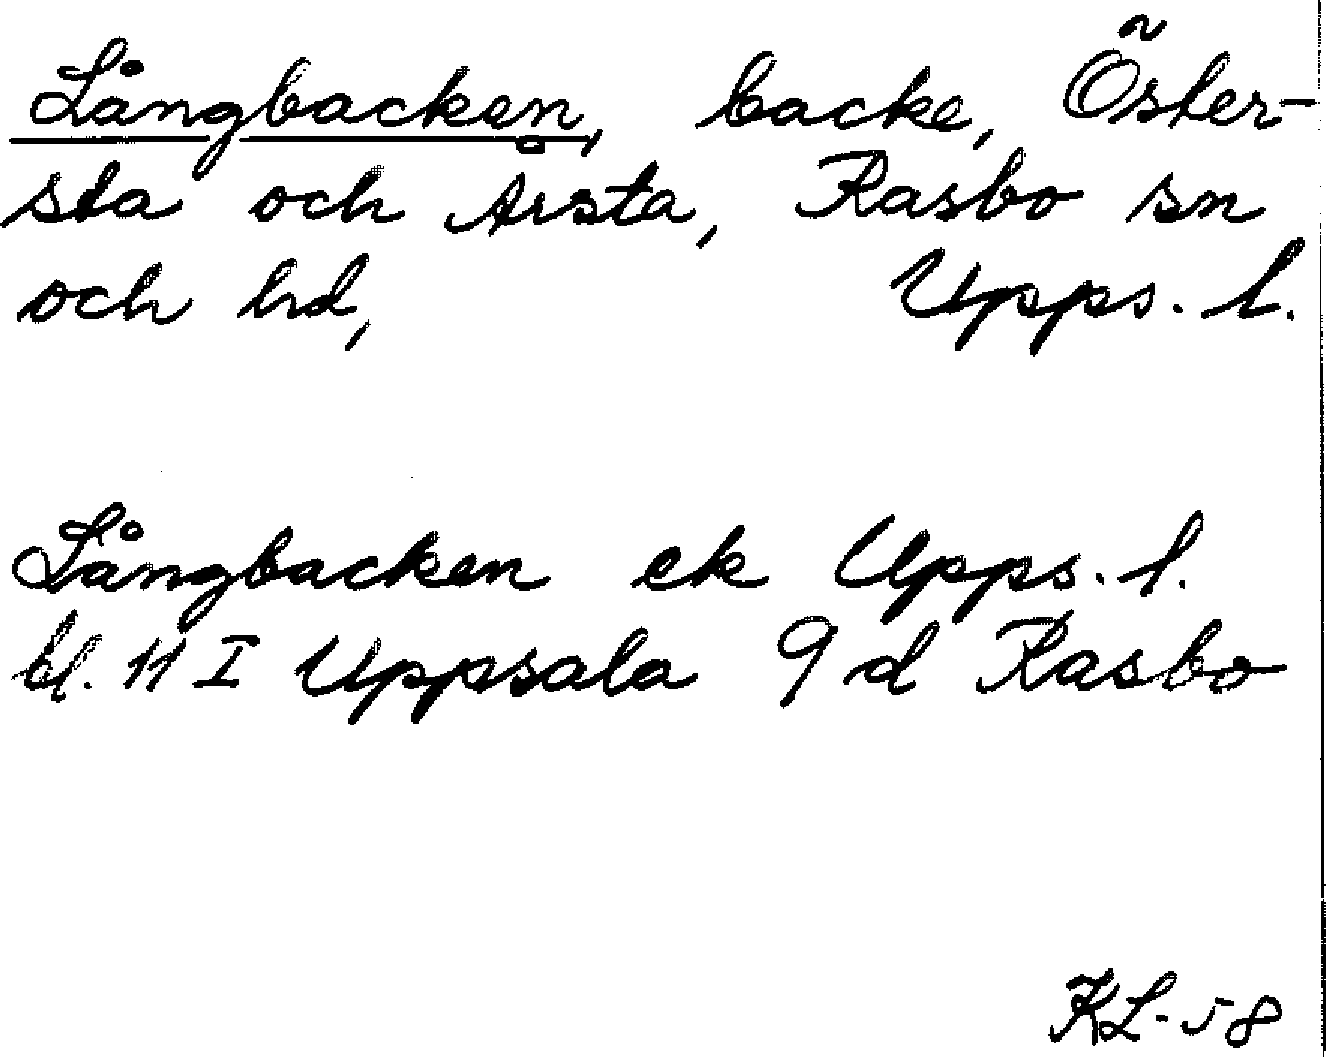 Långbacken, backe, Öster-
sta och Årsta, Rasbo sn
och hd, Upps. l.
Långbacken ek Upps. l.
bl. 11 I Uppsala 9 d Rasbo
KL-58